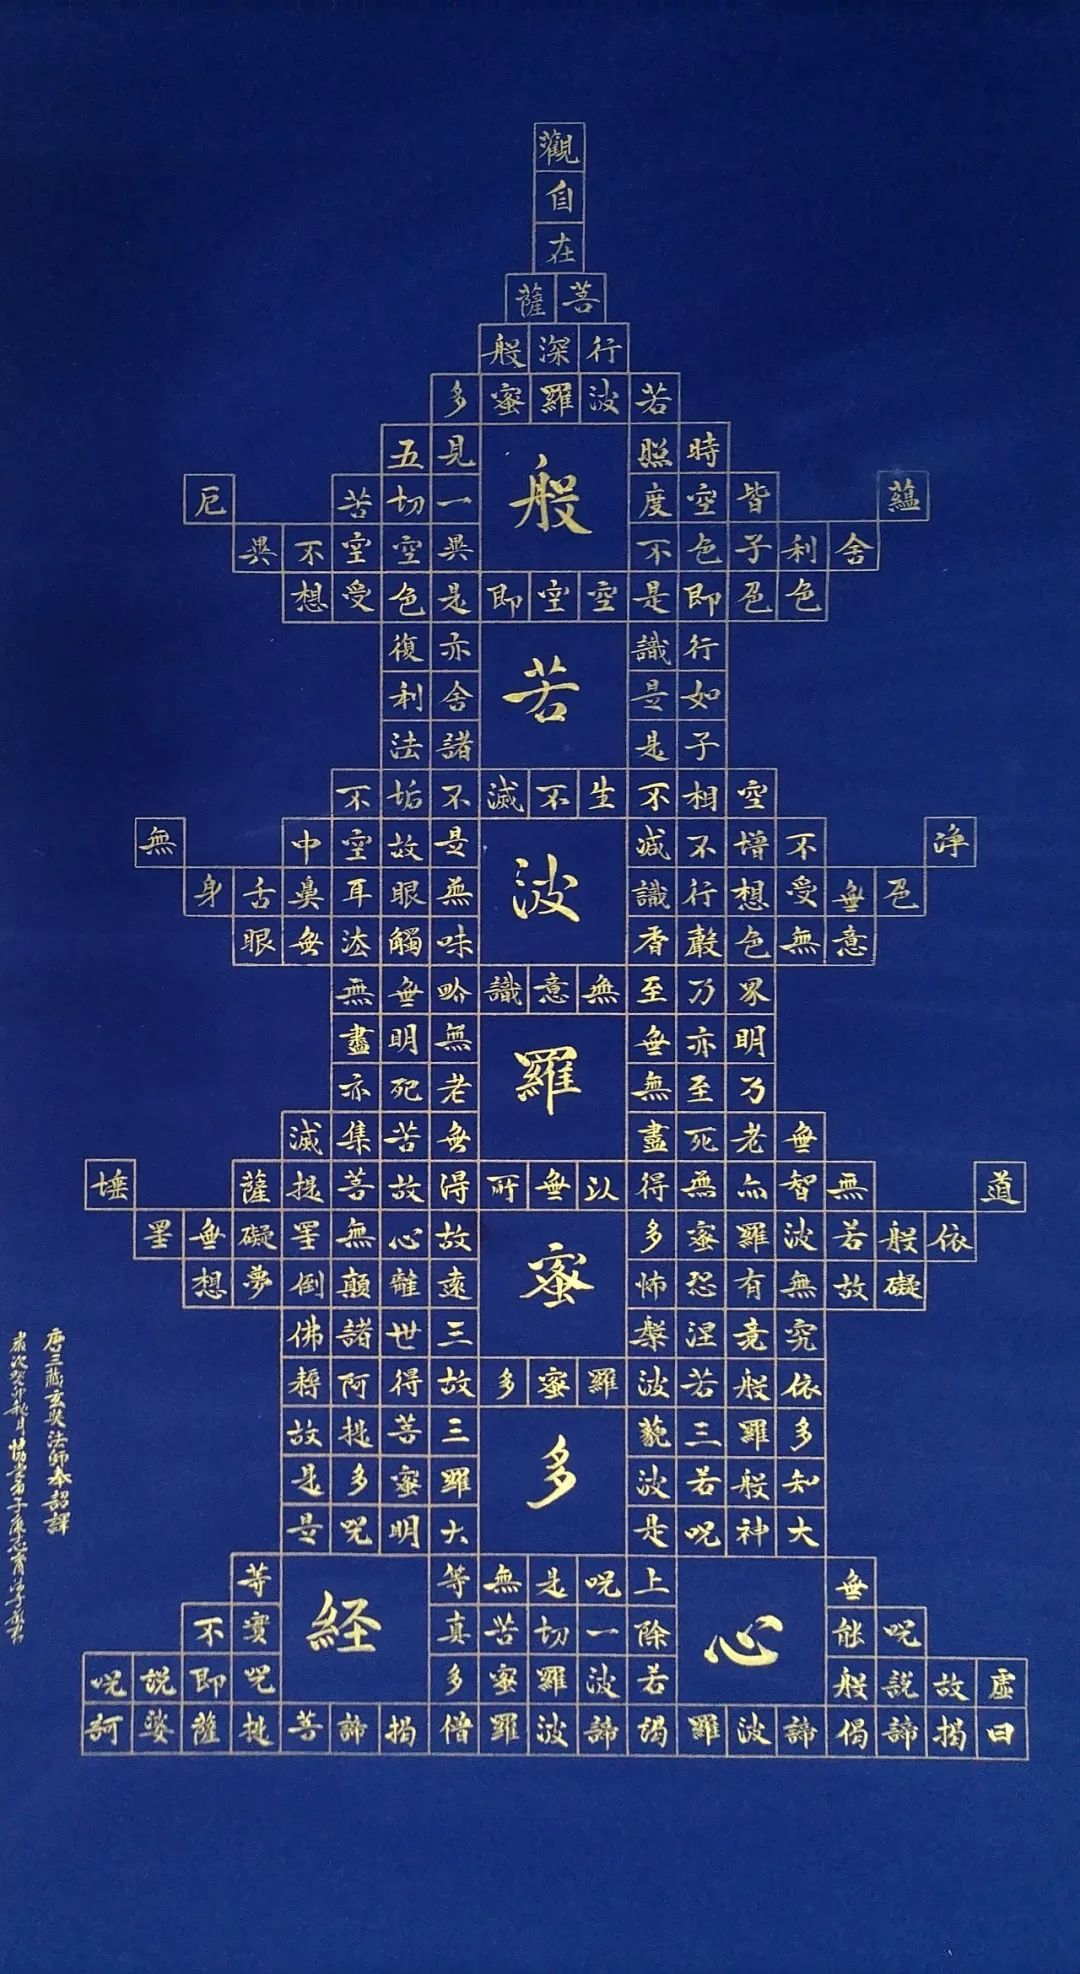 觀
自
在
菩薩
行深般
若波羅蜜多
時照見五
蘊皆空度一切苦厄
舍利子色不異空空不異
色色即是空空即是色受想
行識亦復
如是舍利
子是諸法
空相不生不滅不垢不
浄不增不減是故空中無
色無受想行識無眼耳鼻舌身
意無色聲香味觸法無眼
界乃至無意識界無無
明亦無無明盡
乃至無老死亦
無老死盡無苦集滅
道無智亦無得以無所得故菩提薩埵
依般若波羅蜜多故心無罣礙無罣
礙故無有恐怖遠離顛倒夢想
究竟涅槃三世諸佛
依般若波羅蜜多故得阿耨
多羅三藐三菩提故
知般若波羅蜜多是
大神呪是大明呪是
無上呪是無等等
呪能除一切苦真實不
虛故說般若波羅蜜多呪即說呪
曰揭諦偈諦波羅謁諦波羅僧揭諦菩提薩婆訶
般
若
波
羅
蜜
多
心経
唐三藏玄奘法師奉詔譯
歲次癸卯秋月